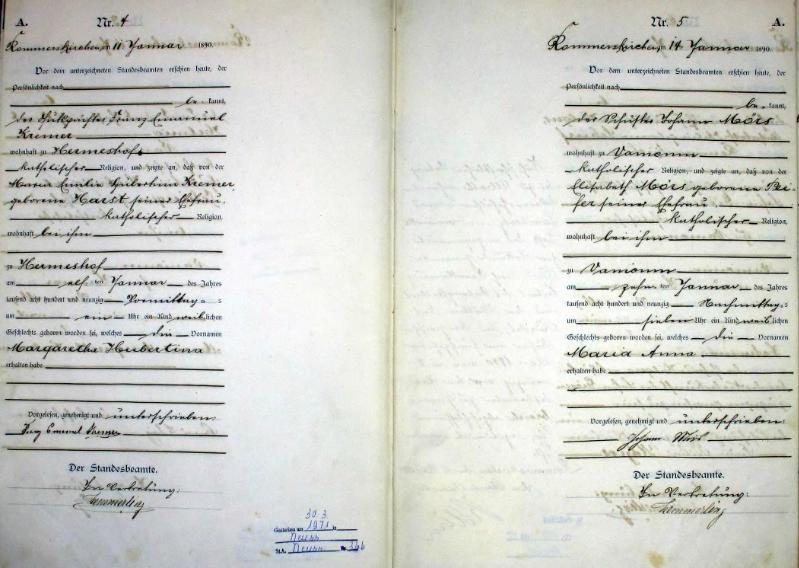 A.
Nr. 4
Rommerskirchen, am 11 Januar 1890.
Vor dem unterzeichneten Standesbeamten erschien heute, der
Persönlichkeit nach
be- kannt,
der Gutspächter Franz Emanuel
Kremer
wohnhaft zu Hermeshof
katholischer Religion, und zeigte an, daß von der
Maria Emilie Hubertina Kremer
geborene Harst seiner Ehefrau,
katholischer Religion,
wohnhaft bei ihm
zu Hermeshof
am elf ten Januar des Jahres
tausend acht hundert und neunzig Vormittag s
um ein Uhr ein Kind weiblichen
Geschlechts geboren worden sei, welches die Vornamen
Margaretha Hubertina
erhalten habe
Vorgelesen, genehmigt und unterschrieben
Franz Emanuel Kremer
Der Standesbeamte.
In Vertretung:
Hemmerling
30.3.
Gestorben am 1971 in
Neuss
StA. Neuss Nr. 346
Nr. 5
A.
Rommerskirchen, am 14 Januar 1890.
Vor dem unterzeichneten Standesbeamten erschien heute, der
Persönlichkeit nach
be- kannt,
der Schuster Johann Mörs
wohnhaft zu Vanikum
katholischer Religion, und zeigte an, daß von der
Elisabeth Mörs geborenen Pei-
fer seiner Ehefrau
katholischer Religion,
wohnhaft bei ihm
zu Vanikum
am zehn ten Januar des Jahres
tausend acht hundert und neunzig Nachmittag s
um sieben Uhr ein Kind weiblichen
Geschlechts geboren worden sei, welches die Vornamen
Maria Anna
erhalten habe
Vorgelesen, genehmigt und unterschrieben
Johann Mörs
Der Standesbeamte.
In Vertretung:
Hemmerling